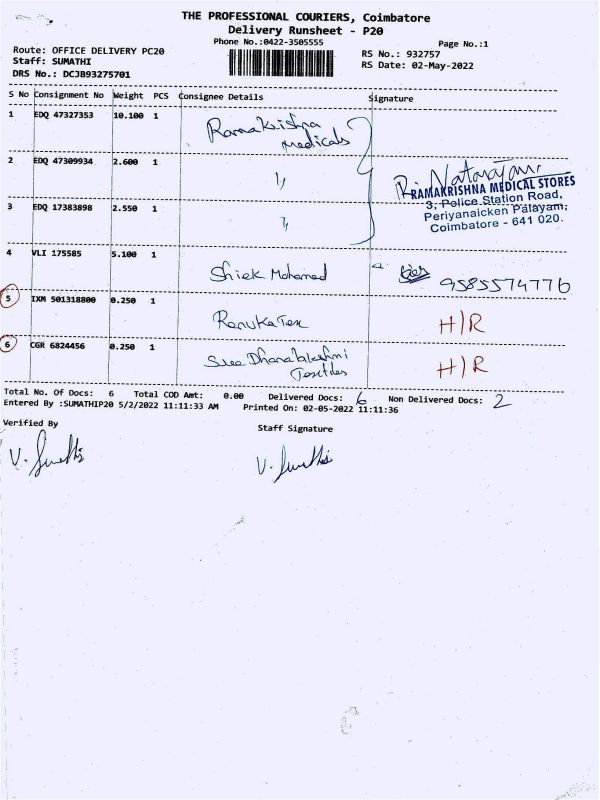 THE PROFESSIONAL COURIERS, Coimbatore
Delivery Runsheet - P20
Phone No.:0422-3505555
Page No.:1
Route: OFFICE DELIVERY PC20
RS No.: 932757
Staff: SUMATHI
RS Date: 02-May-2022
DRS No.: DCJB93275701
S No Consignment No Weight PCS Consignee Details Signature
1 EDQ 47327353 10.100 1 Ramakrishna Medicals
2 EDQ 47309934 2.600 1 "
R. Natarajan
RAMAKRISHNA MEDICAL STORES
3, Police Station Road,
Periyanaicken Palayam,
Coimbatore - 641 020.
3 EDQ 17383898 2.550 1 "
4 VLI 175585 5.100 1 Shiek Mohamed 9585574776
5 IXM 501318800 0.250 1 Renuka Tex H/R
6 CGR 6824456 0.250 1 Sree Dhanalakshmi Textiles H/R
Total No. Of Docs: 6 Total COD Amt: 0.00 Delivered Docs: 6 Non Delivered Docs: 2
Entered By :SUMATHIP20 5/2/2022 11:11:33 AM Printed On: 02-05-2022 11:11:36
Verified By
Staff Signature
V. Sumathi
V. Sumathi